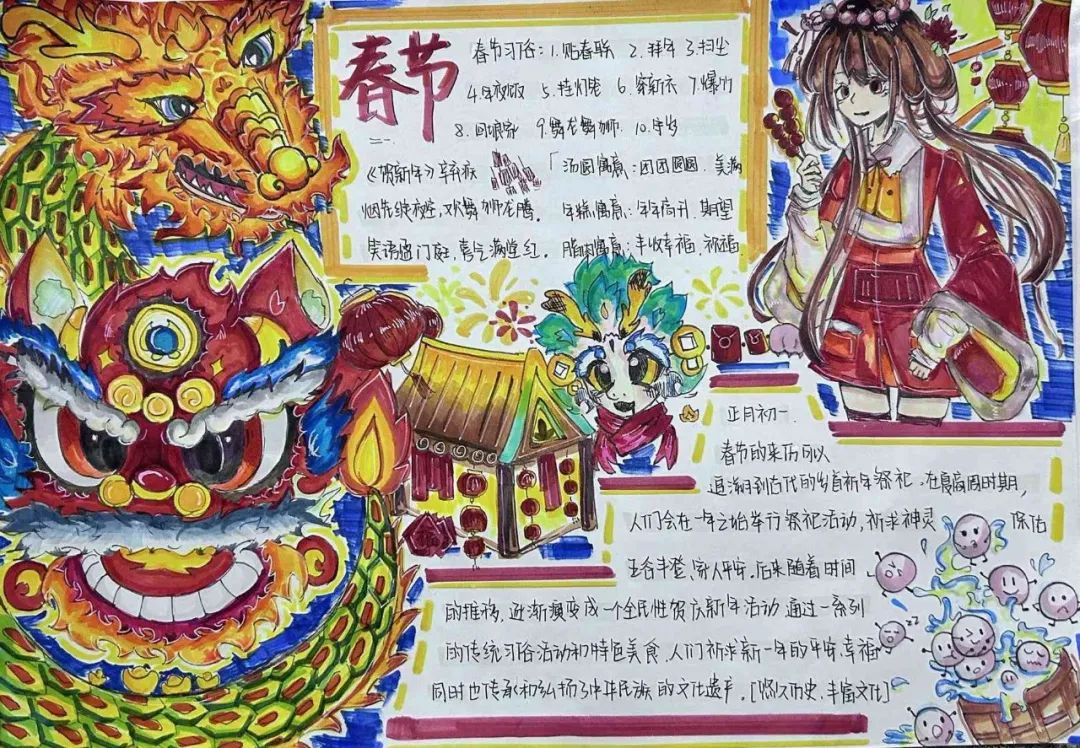 春节
春节习俗：1.贴春联 2.拜年 3.扫尘
4.年夜饭 5.挂灯笼 6.穿新衣 7.爆竹
8.回娘家 9.舞龙舞狮. 10.守岁
《贺新年》辛弃疾
烟花绽夜空，欢舞狮龙腾。
笑语盈门庭，喜气满堂红。
「汤圆寓意：团团圆圆. 美满
年糕寓意：年年高升. 期望
腊肉寓意：丰收幸福. 祝福
正月初一.
春节的来历可以
追溯到古代的岁首祈年祭祀。在夏商周时期，
人们会在一年之始举行祭祀活动，祈求神灵 保佑
五谷丰登、家人平安。后来随着时间
的推移，逐渐演变成一个全民性贺庆新年活动 通过一系列
的传统习俗活动和特色美食，人们祈求新一年的平安，幸福
同时也传承和弘扬了中华民族的文化遗产。[悠久历史、丰富文化]